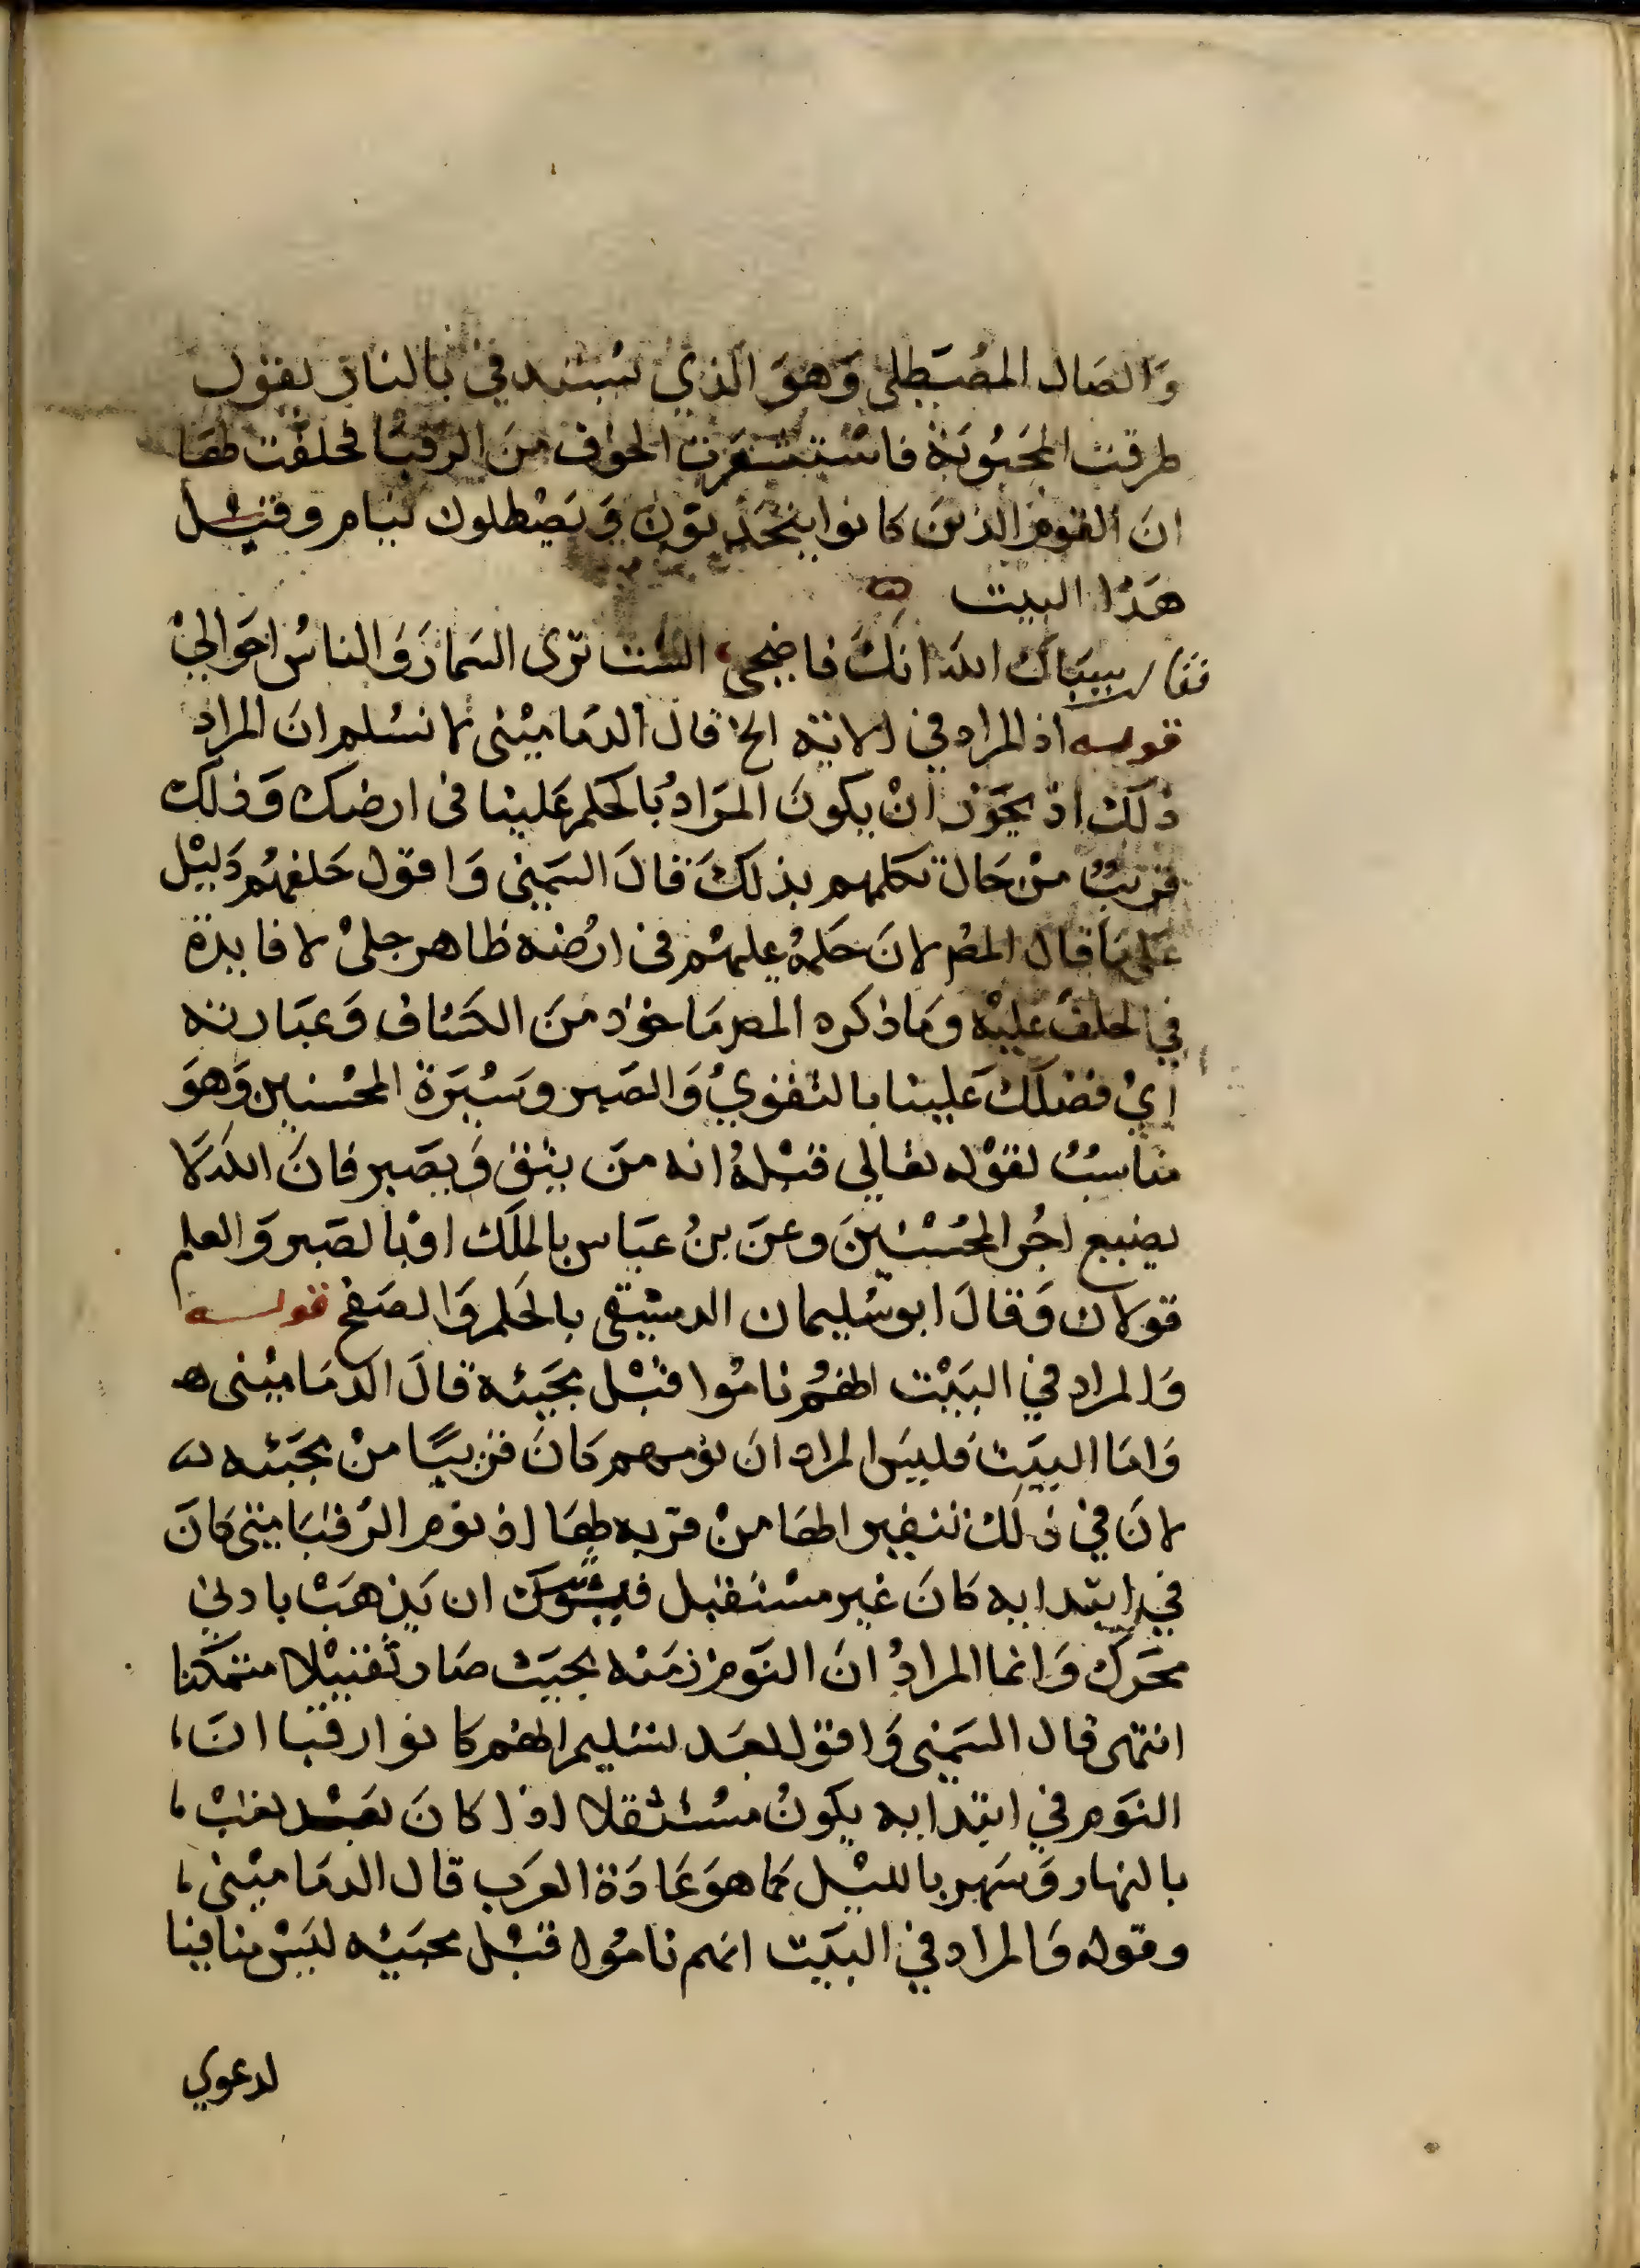 والصال المصطلى وهو الذي يستدفي بالنار يقول
طرقت المحبوبة فاستشعرت الخوف من الرقبا فحلفت لها
ان القوم الذين كانوا يتحدثون ويصطلون نيام وقبل
هذا البيت
فقالت سباك الله انك فاضحي، الست ترى السمار والناس احوالي
قوله اذ المراد في الاية الخ قال الدماميني لا نسلم ان المراد
ذلك اذ يجوز ان يكون المراد بالحكم علينا في ارضك وذلك
قريب من حال تكلمهم بذلك قال الشمني واقول حلفهم دليل
على ما قال المص لان حكمه عليهم في ارضه ظاهر جلى لا فايدة
في الحلف عليه وما ذكره المص ماخوذ من الكشاف وعبارته
اي فضلك علينا بالتقوي والصبر وسيرة المحسنين وهو
مناسب لقوله تعالى قبله انه من يتق ويصبر فان الله لا
يضيع اجر المحسنين وعن بن عباس بالملك او بالصبر والعلم
قولان وقال ابو سليمان الدمشقي بالحلم والصفح قوله
والمراد في البيت انهم ناموا قبل مجيئه قال الدماميني
واما البيت فليس المراد ان نومهم كان قريبا من مجيئه
لان في ذلك تنفيرا لها من قربه لها اذ نوم الرقبا متى كان
في ابتدايه كان غير مستقل فيوشك ان يذهب بادنى
محرك وانما المراد ان النوم زمنه بحيث صار ثقيلا متمكنا
انتهى قال الشمني واقول بعد تسليم انهم كانوا رقبا ان،
النوم في ابتدايه يكون مستثقلا اذا كان بعد تعب،
بالنهار وسهر بالليل كما هو عادة العرب قال الدماميني،
وقوله والمراد في البيت انهم ناموا قبل مجيئه ليس منافيا
لدعوي